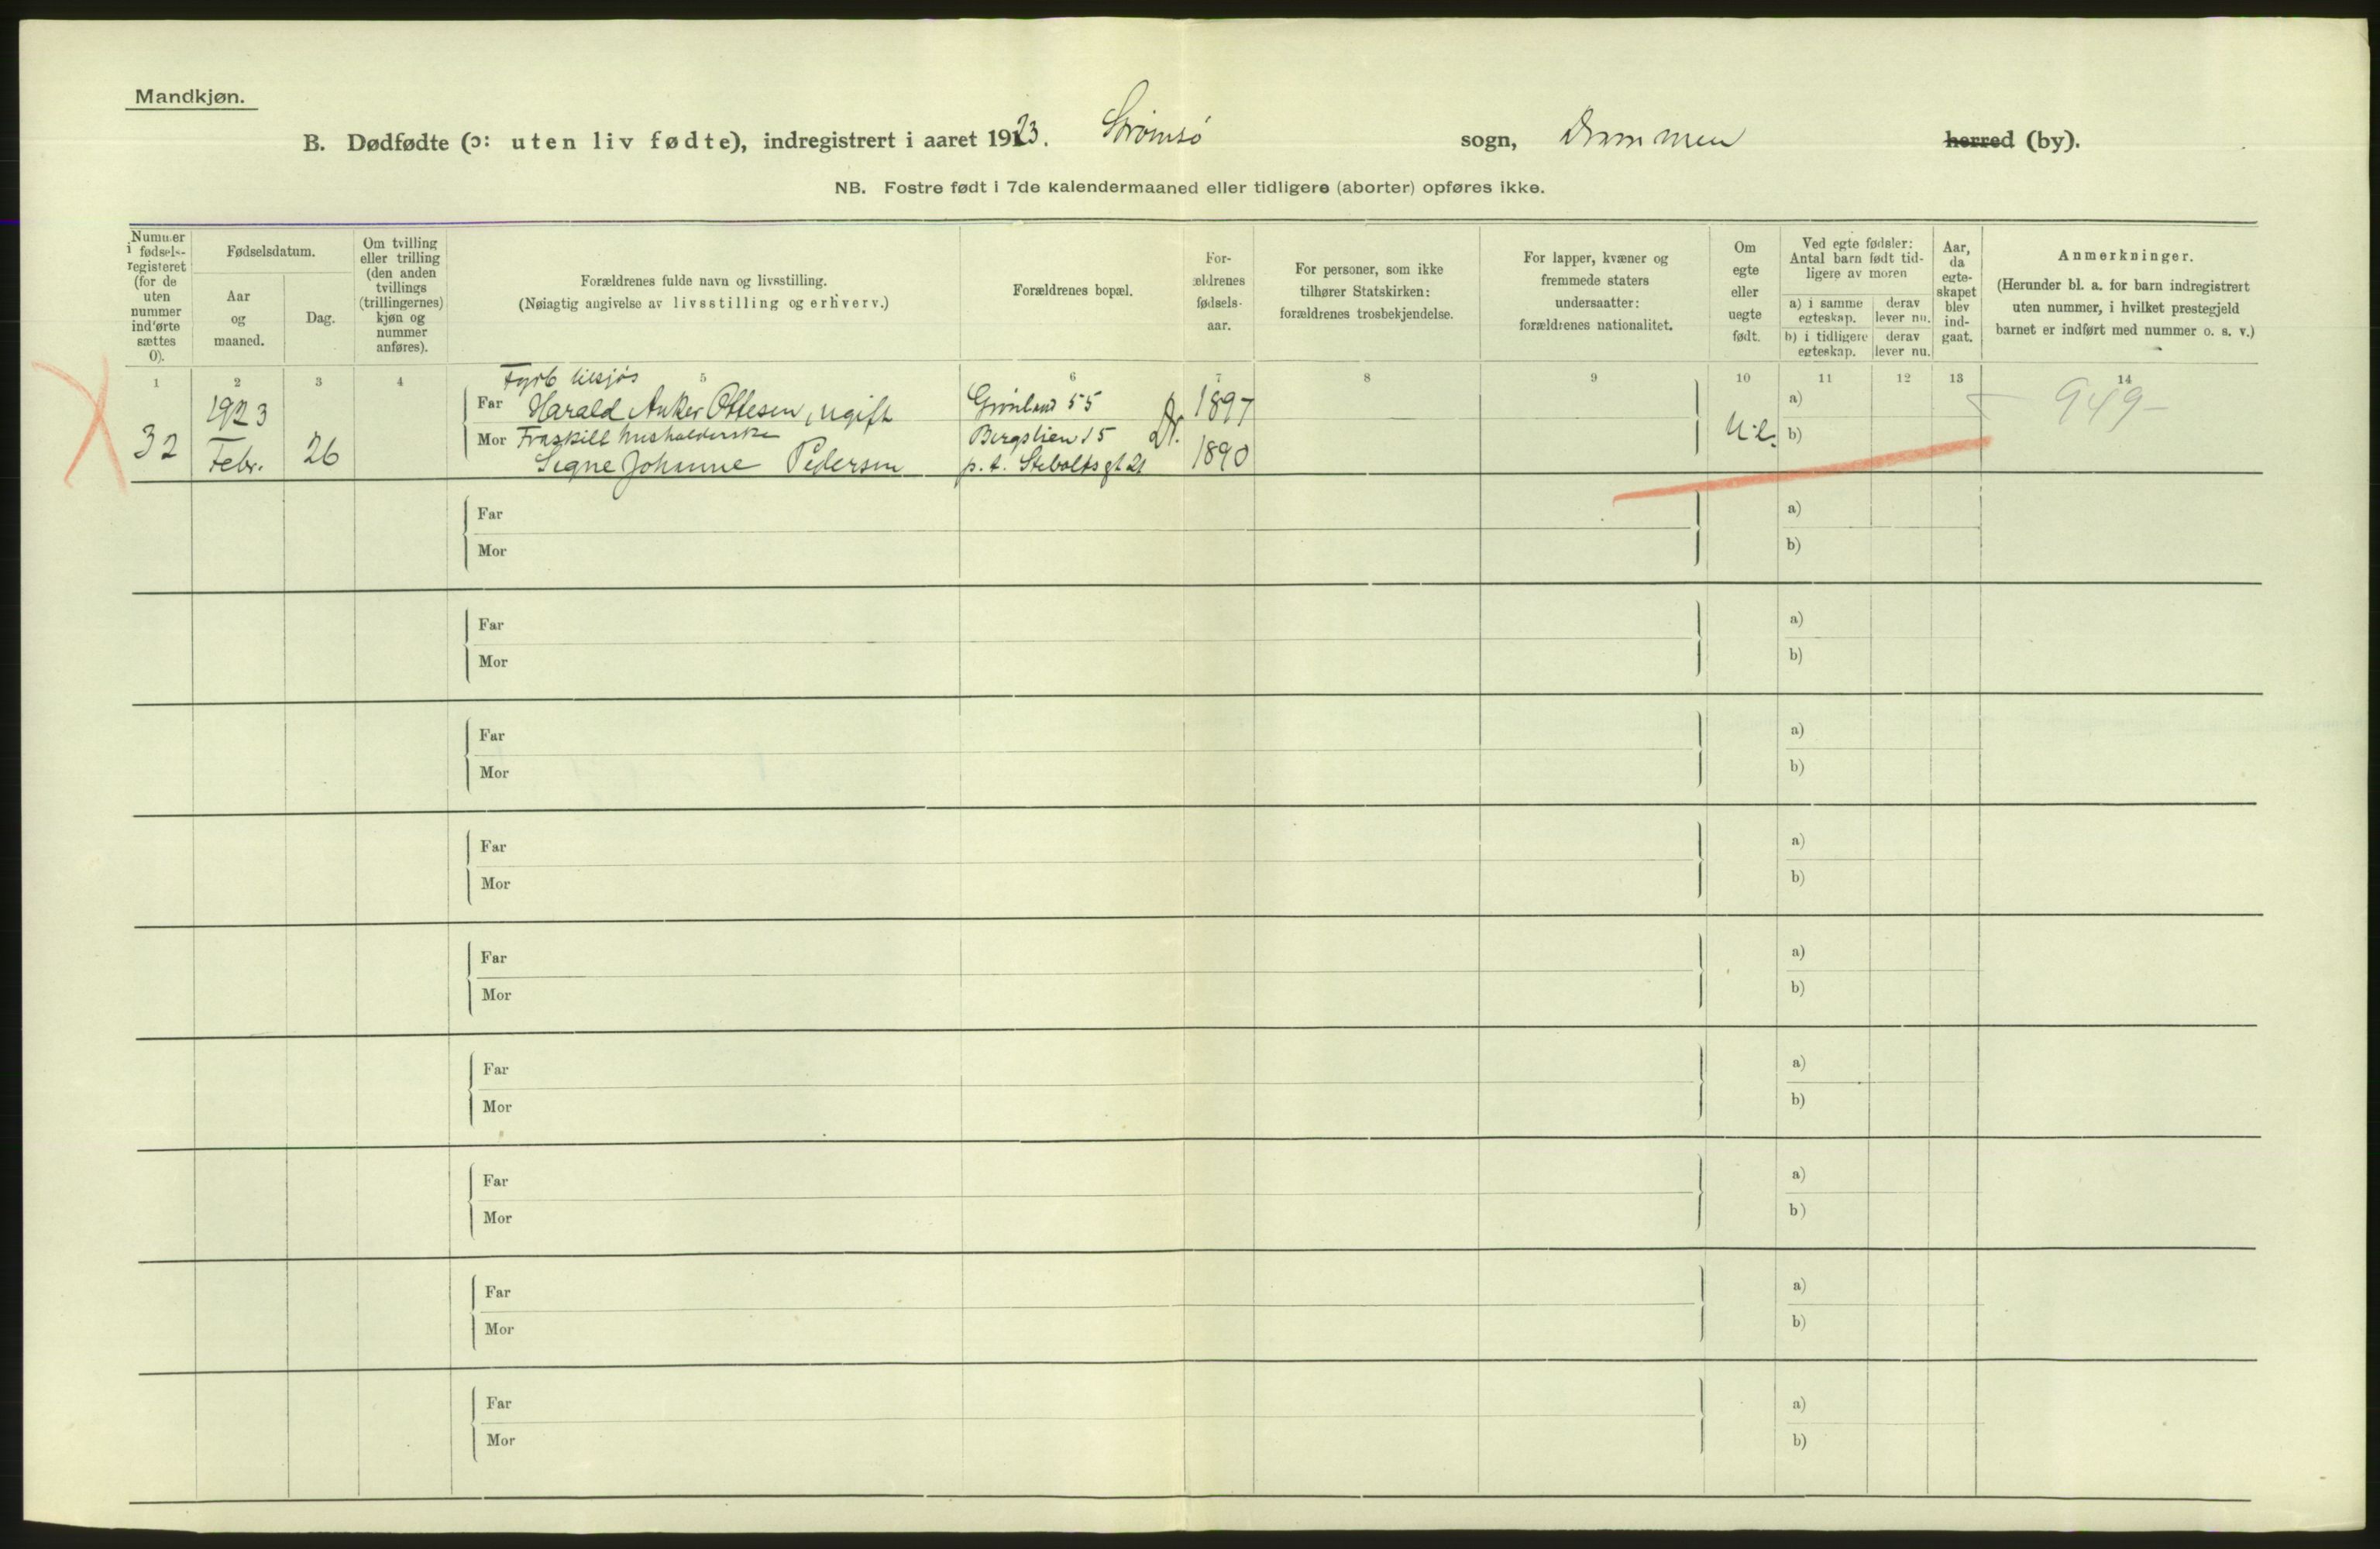 Mandkjøn.
B. Dødfødte (ɔ: uten liv fødte), indregistrert i aaret 1923. Strømsø sogn, Drammen herred (by).
NB. Fostre født i 7de kalendermaaned eller tidligere (aborter) opføres ikke.
Nummer i fødsels-registeret (for de uten nummer indførte sættes 0).
Fødselsdatum.
Aar og maaned.
Dag.
Om tvilling eller trilling (den anden tvillings (trillingernes) kjøn og nummer anføres).
Forældrenes fulde navn og livsstilling.
(Nøiagtig angivelse av livsstilling og erhverv.)
Forældrenes bopæl.
For-ældrenes fødsels-aar.
For personer, som ikke tilhører Statskirken: forældrenes trosbekjendelse.
For lapper, kvæner og fremmede staters undersaatter: forældrenes nationalitet.
Om egte eller uegte født.
Ved egte fødsler: Antal barn født tid-ligere av moren
a) i samme egteskap.
derav lever nu.
b) i tidligere egteskap.
derav lever nu.
Aar, da egte-skapet blev ind-gaat.
Anmerkninger.
(Herunder bl. a. for barn indregistrert uten nummer, i hvilket prestegjeld barnet er indført med nummer o. s. v.)
1 2 3 4 5 6 7 8 9 10 11 12 13 14
Fyrb tilsjøs
1923 Far Harald Anker Ottesen, ugift Grønland 55 Dr. 1897 a) 949-
32 Febr. 26 Mor Fraskilt husholderske Bergslien 15 U.e. b)
Signe Johanne Pedersen p.t. Stiboltsgt 21 1890
Far a)
Mor b)
Far a)
Mor b)
Far a)
Mor b)
Far a)
Mor b)
Far a)
Mor b)
Far a)
Mor b)
Far a)
Mor b)
Far a)
Mor b)
Far a)
Mor b)